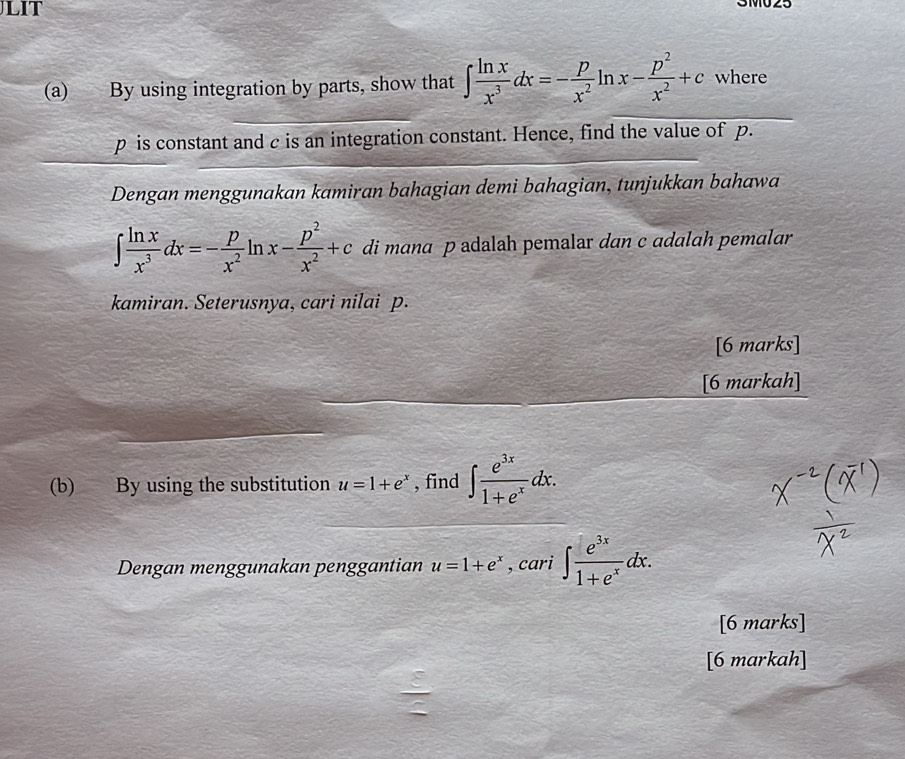 ULIT
SM025
(a) By using integration by parts, show that ∫ ln x / x³ dx = − p/x² ln x − p²/x² + c where
p is constant and c is an integration constant. Hence, find the value of p.
Dengan menggunakan kamiran bahagian demi bahagian, tunjukkan bahawa
∫ ln x / x³ dx = − p/x² ln x − p²/x² + c di mana p adalah pemalar dan c adalah pemalar
kamiran. Seterusnya, cari nilai p.
[6 marks]
[6 markah]
(b) By using the substitution u = 1 + eˣ , find ∫ e³ˣ / 1 + eˣ dx.
x⁻² (x⁻¹)
1/x²
Dengan menggunakan penggantian u = 1 + eˣ , cari ∫ e³ˣ / 1 + eˣ dx.
[6 marks]
[6 markah]